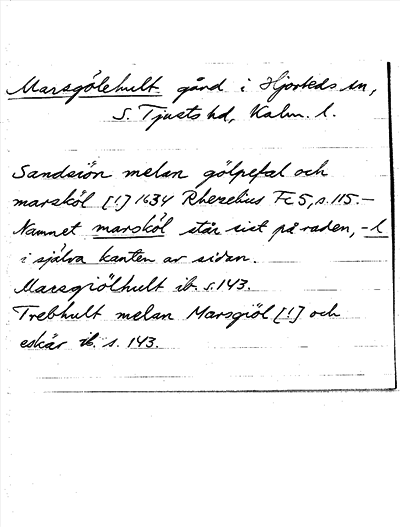 Marsgölehult gård i Hjorteds sn,
S. Tjusts hd, Kalm. l.
Sandsiön melan gölpefal och
marsköl [!] 1634 Rhezelius Fc5, s. 115.–
Namnet marsköl står sist på raden, -l
i själva kanten av sidan.
Marsgiölhult ib. s. 143.
Trebhult melan Marsgiöl [!] och
eskär ib. s. 143.